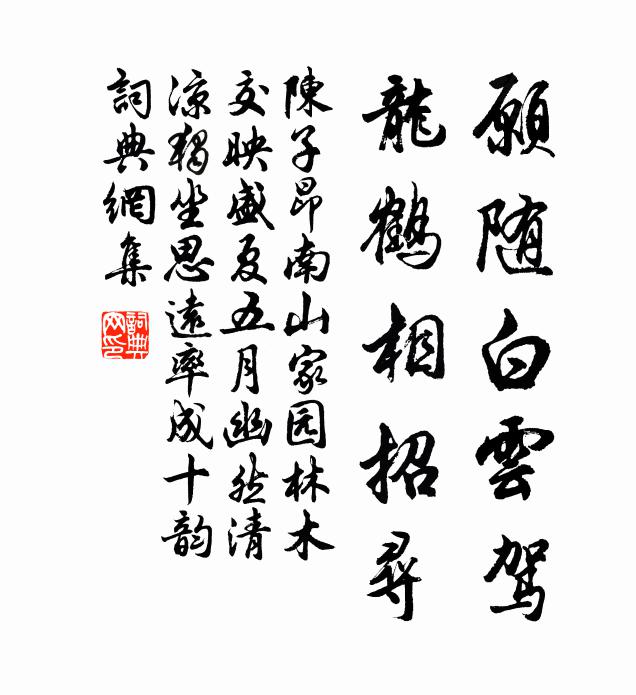 願随白雲駕
龍鶴相招尋
陳子昂南山家园林木
交映盛夏五月幽然清
凉獨坐思遠率成十韵
詞典網集
詞典
网印